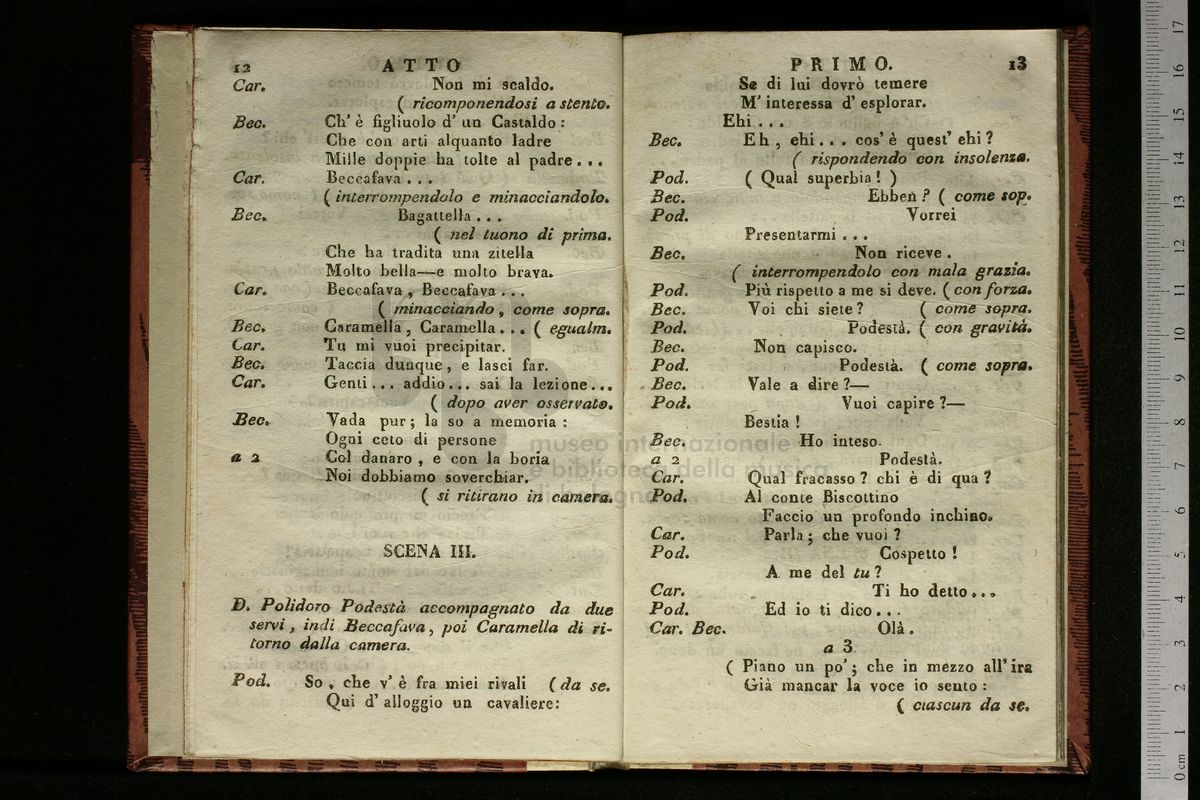 12 ATTO
Car. Non mi scaldo.
( ricomponendosi a stento.
Bec. Ch' è figliuolo d' un Castaldo :
Che con arti alquanto ladre
Mille doppie ha tolte al padre...
Car. Beccafava...
( interrompendolo e minacciandolo.
Bec. Bagattella...
( nel tuono di prima.
Che ha tradita una zitella
Molto bella—e molto brava.
Car. Beccafava, Beccafava...
( minacciando, come sopra.
Bec. Caramella, Caramella... ( egualm.
Car. Tu mi vuoi precipitar.
Bec. Taccia dunque, e lasci far.
Car. Genti... addio... sai la lezione...
( dopo aver osservato.
Bec. Vada pur; la so a memoria :
Ogni ceto di persone
a 2 Col danaro, e con la boria
Noi dobbiamo soverchiar.
( si ritirano in camera.
SCENA III.
D. Polidoro Podestà accompagnato da due
servi, indi Beccafava, poi Caramella di ri-
torno dalla camera.
Pod. So, che v' è fra miei rivali (da se.
Qui d' alloggio un cavaliere:
PRIMO. 13
Se di lui dovrò temere
M' interessa d' esplorar.
Ehi...
Bec. Eh, ehi... cos' è quest' ehi ?
( rispondendo con insolenza.
Pod. ( Qual superbia ! )
Bec. Ebben ? ( come sop.
Pod. Vorrei
Presentarmi...
Bec. Non riceve.
( interrompendolo con mala grazia.
Pod. Più rispetto a me si deve. ( con forza.
Bec. Voi chi siete? ( come sopra.
Pod. Podestà. ( con gravità.
Bec. Non capisco.
Pod. Podestà. ( come sopra.
Bec. Vale a dire ?—
Pod. Vuoi capire ?—
Bestia !
Bec. Ho inteso.
a 2 Podestà.
Car. Qual fracasso ? chi è di qua ?
Pod. Al conte Biscottino
Faccio un profondo inchino.
Car. Parla; che vuoi ?
Pod. Cospetto !
A me del tu ?
Car. Ti ho detto...
Pod. Ed io ti dico...
Car. Bec. Olà.
a 3
( Piano un po'; che in mezzo all' ira
Già mancar la voce io sento :
( ciascun da se.
museo internazionale
e biblioteca della musica
di bologna
0 cm 1 2 3 4 5 6 7 8 9 10 11 12 13 14 15 16 17